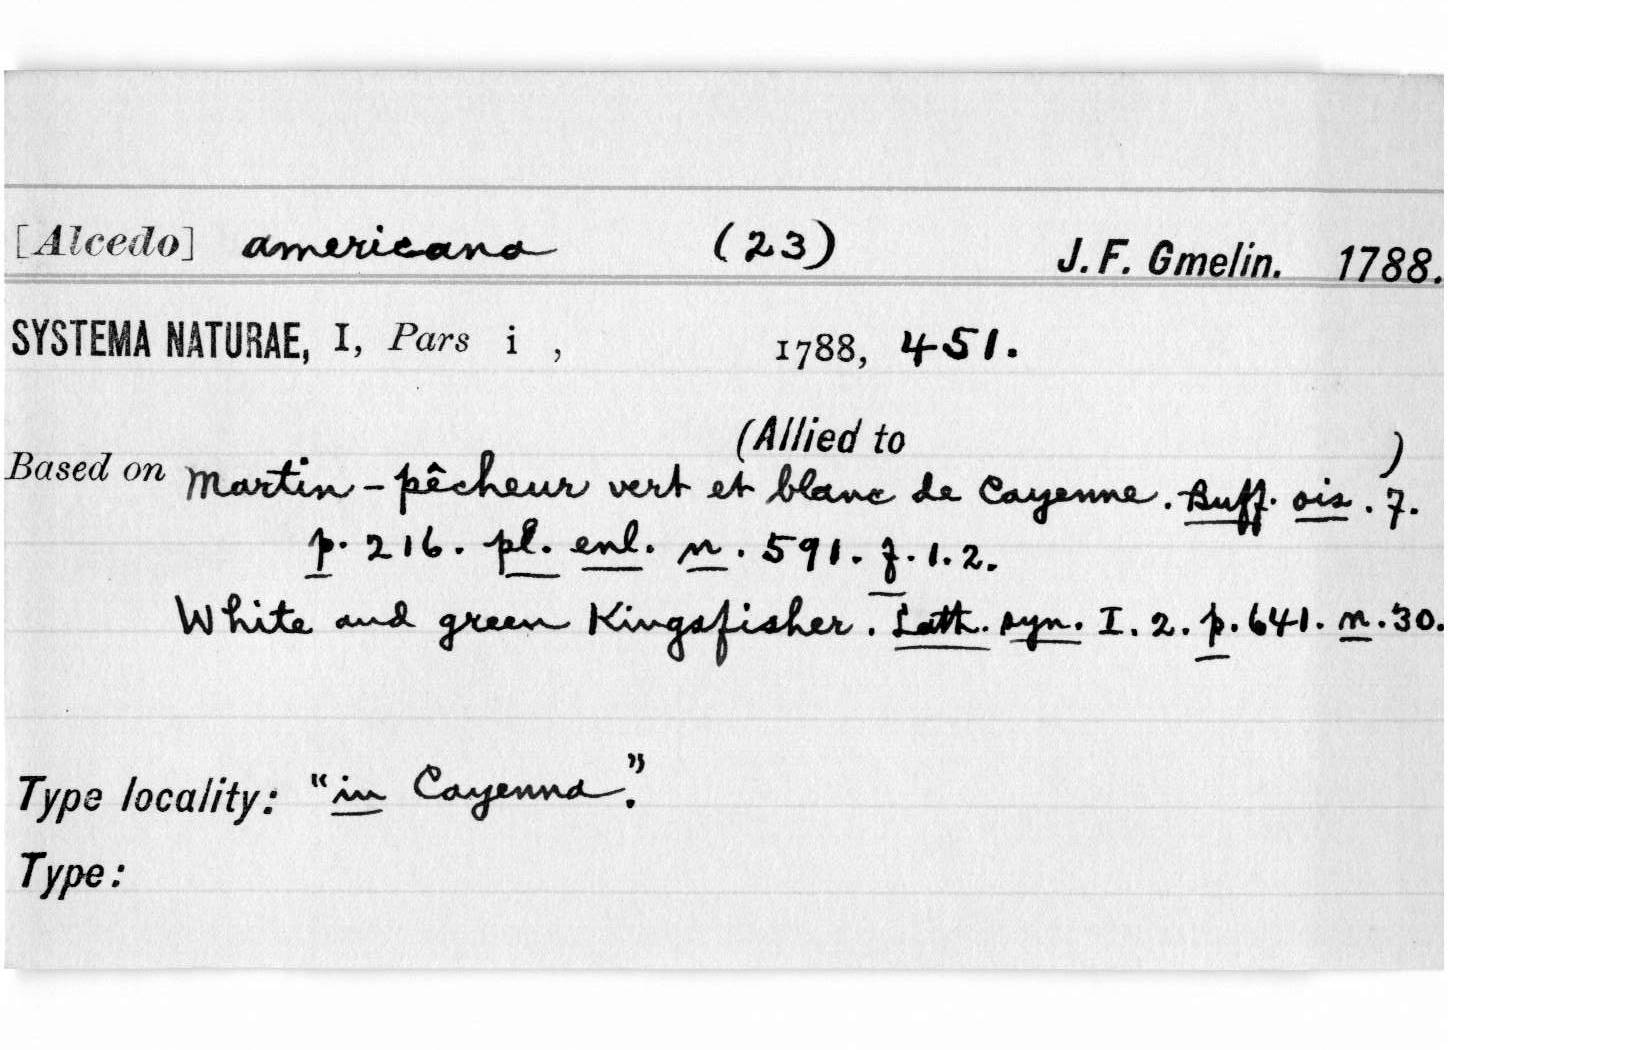 [Alcedo] americana (23) J. F. Gmelin. 1788.
SYSTEMA NATURAE, I, Pars i , 1788, 451.
(Allied to )
Based on Martin-pêcheur vert et blanc de Cayenne. Buff. ois. 7.
p. 216. pl. enl. n. 591. f. 1. 2.
White and green Kingsfisher. Lath. syn. I. 2. p. 641. n. 30.
Type locality: "in Cayenna".
Type: